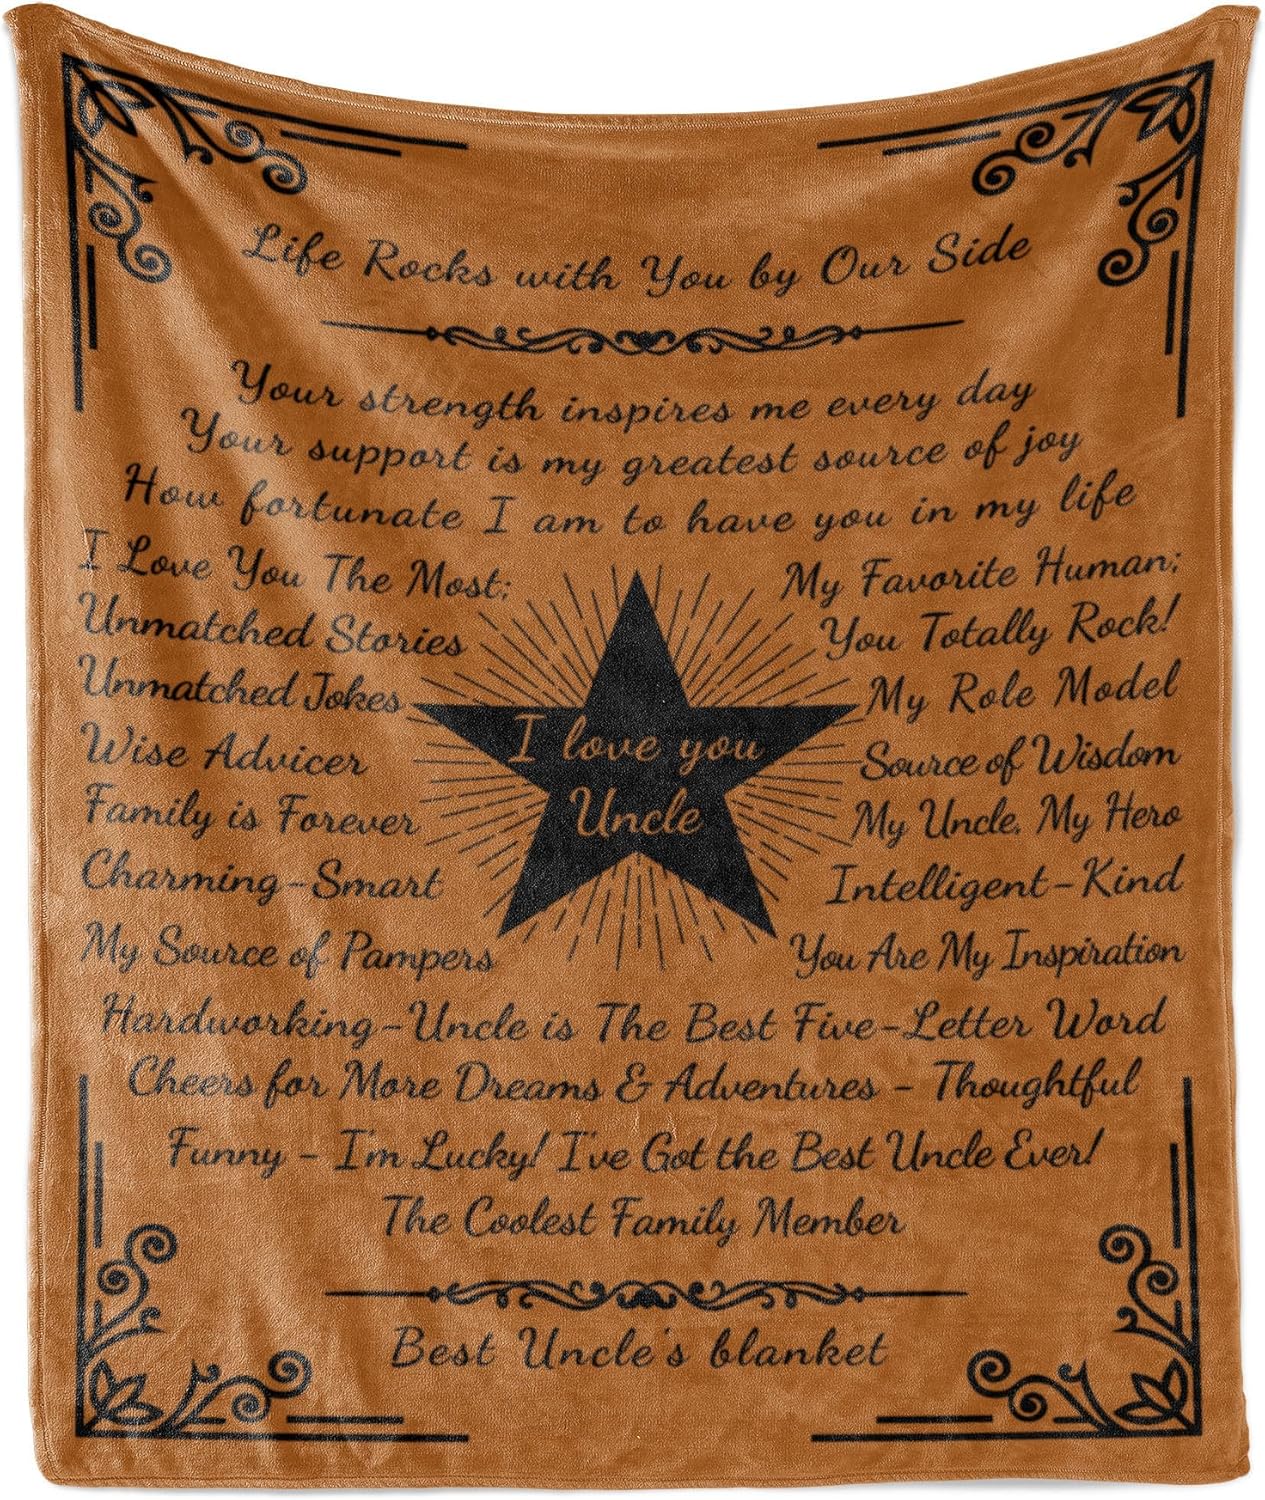 Life Rocks with You by Our Side
Your strength inspires me every day
Your support is my greatest source of joy
How fortunate I am to have you in my life
I Love You The Most:
Unmatched Stories
Unmatched Jokes
Wise Advicer
Family is Forever
Charming-Smart
My Source of Pampers
I love you
Uncle
My Favorite Human:
You Totally Rock!
My Role Model
Source of Wisdom
My Uncle, My Hero
Intelligent-Kind
You Are My Inspiration
Hardworking-Uncle is The Best Five-Letter Word
Cheers for More Dreams & Adventures - Thoughtful
Funny - I'm Lucky! I've Got the Best Uncle Ever!
The Coolest Family Member
Best Uncle's blanket